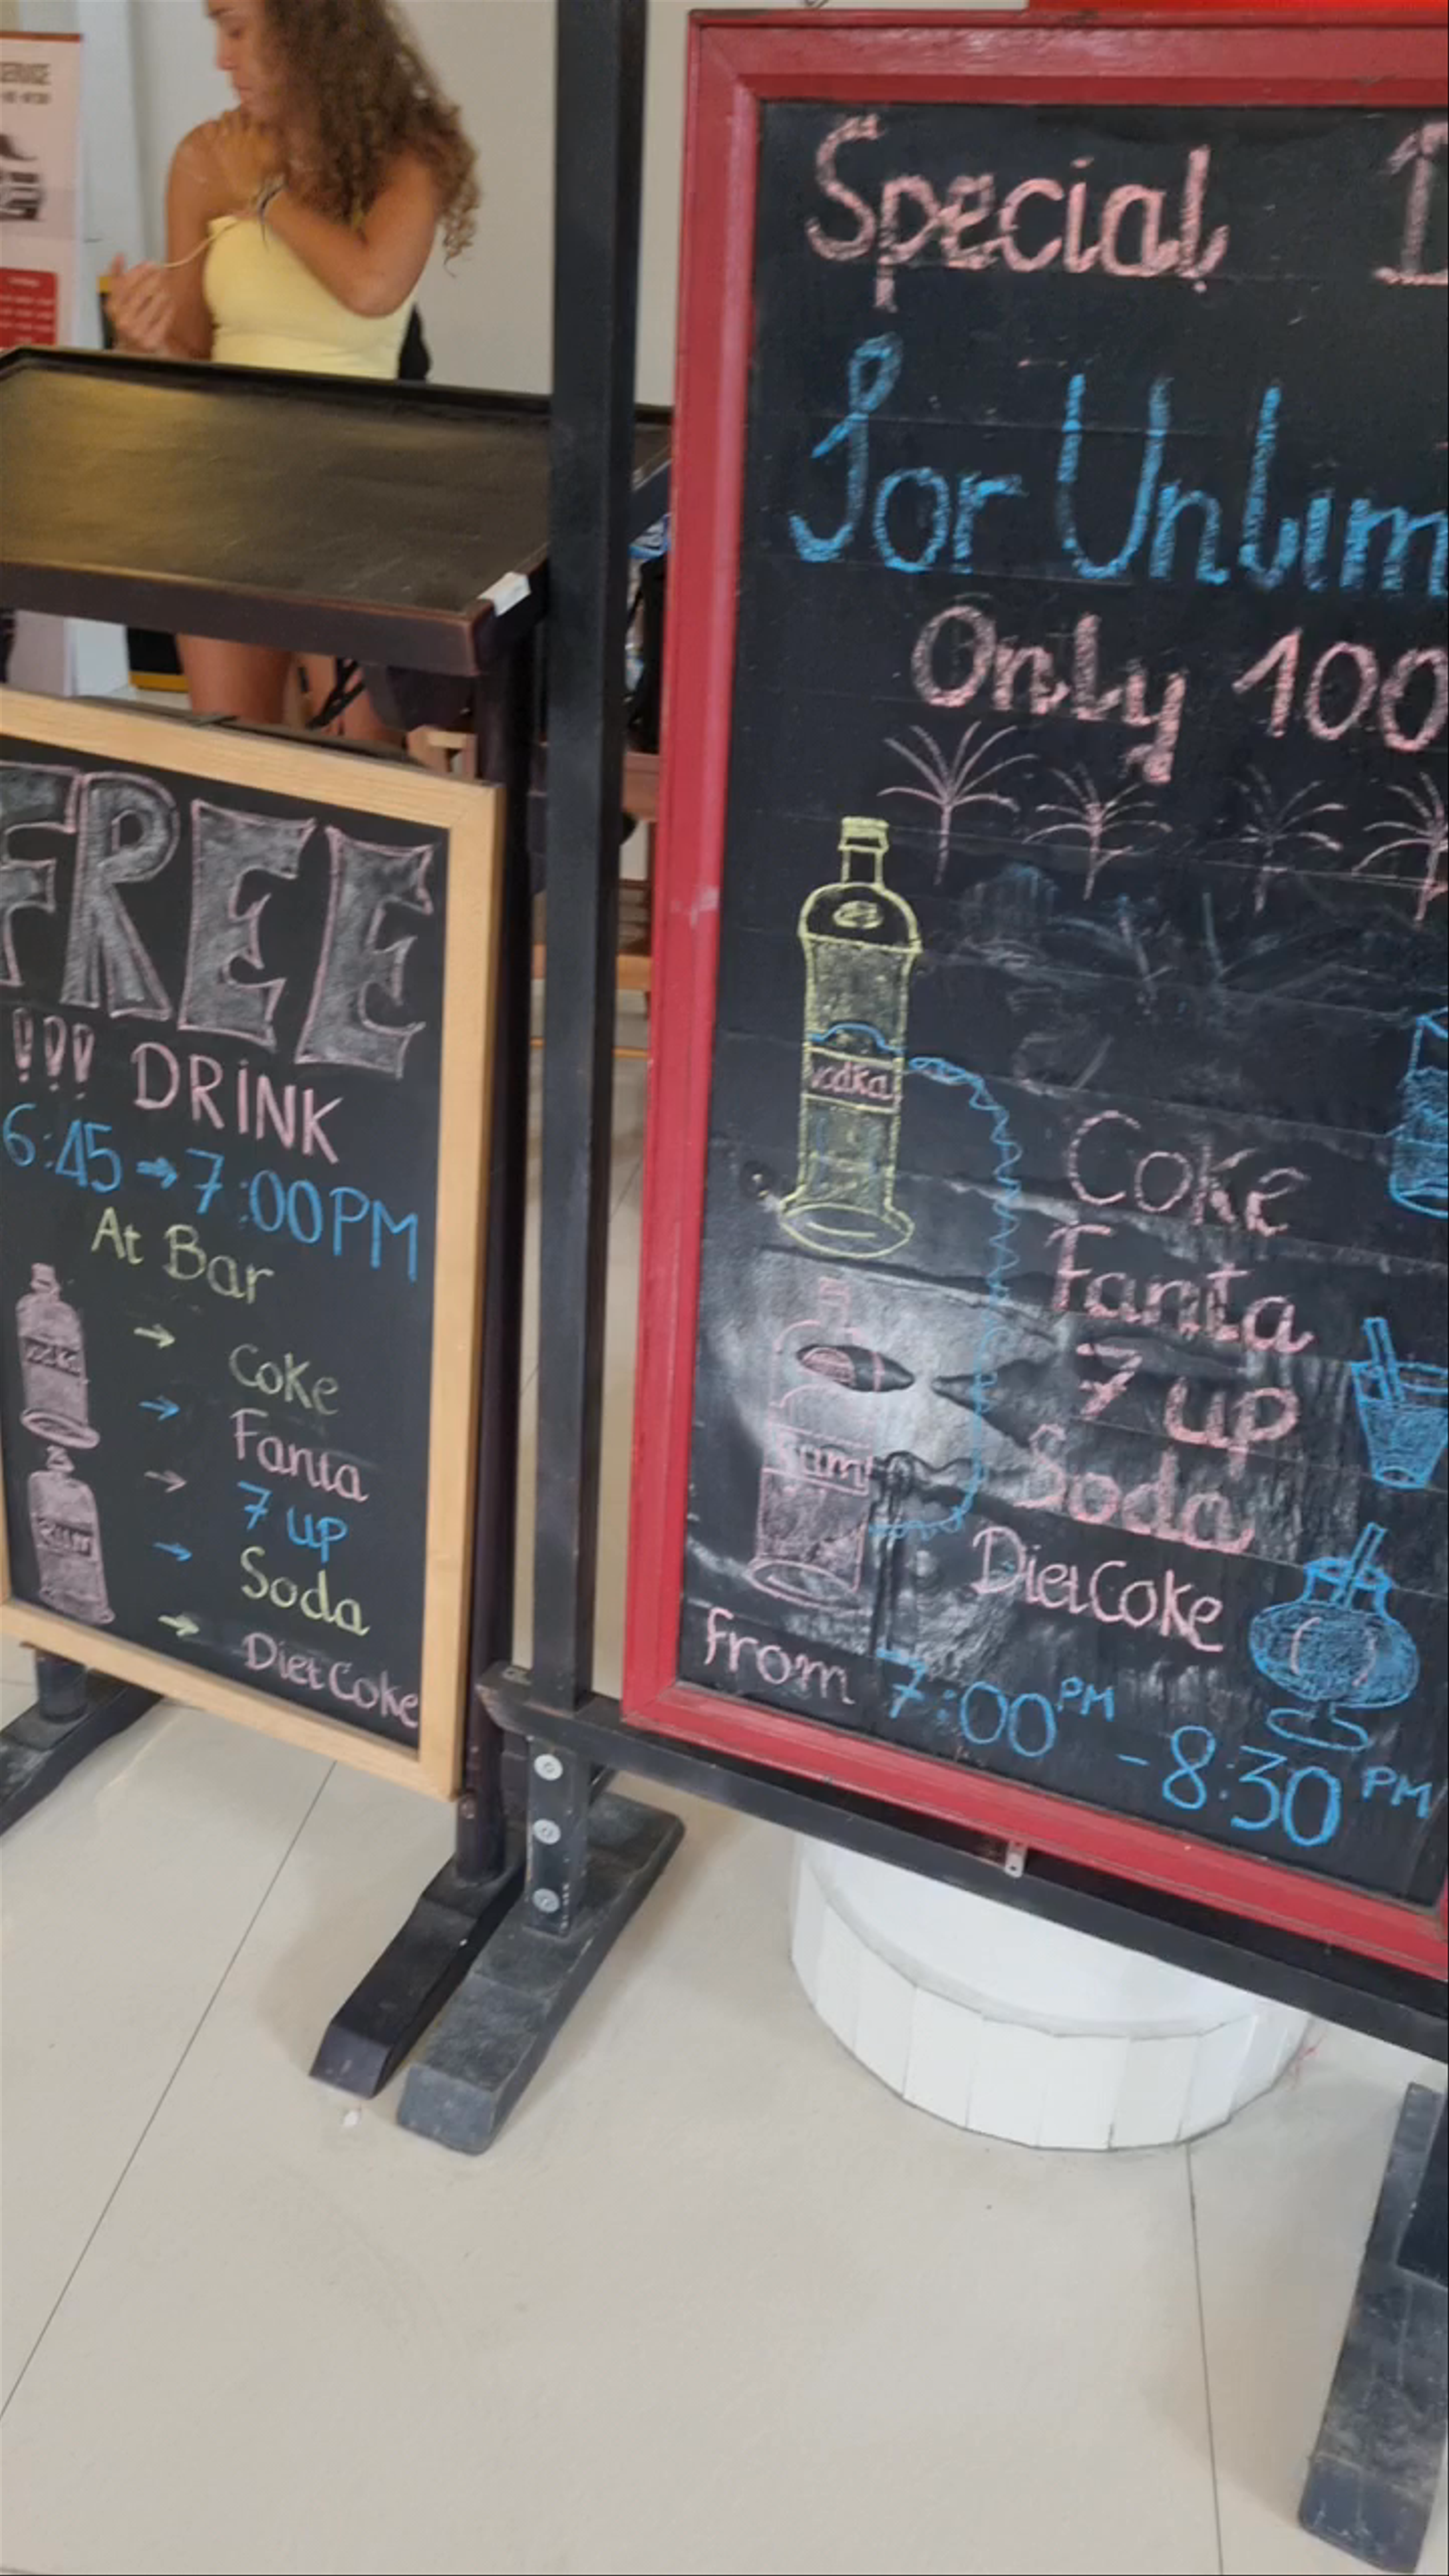 SERVICE
FREE
!!! DRINK
6:45 → 7:00 PM
At Bar
vodka
Rum
→ Coke
→ Fanta
→ 7 up
→ Soda
→ Diet Coke
Special
For Unlim
Only 100
vodka
Rum
Coke
Fanta
7 up
Soda
Diet Coke
from 7:00 PM - 8:30 PM